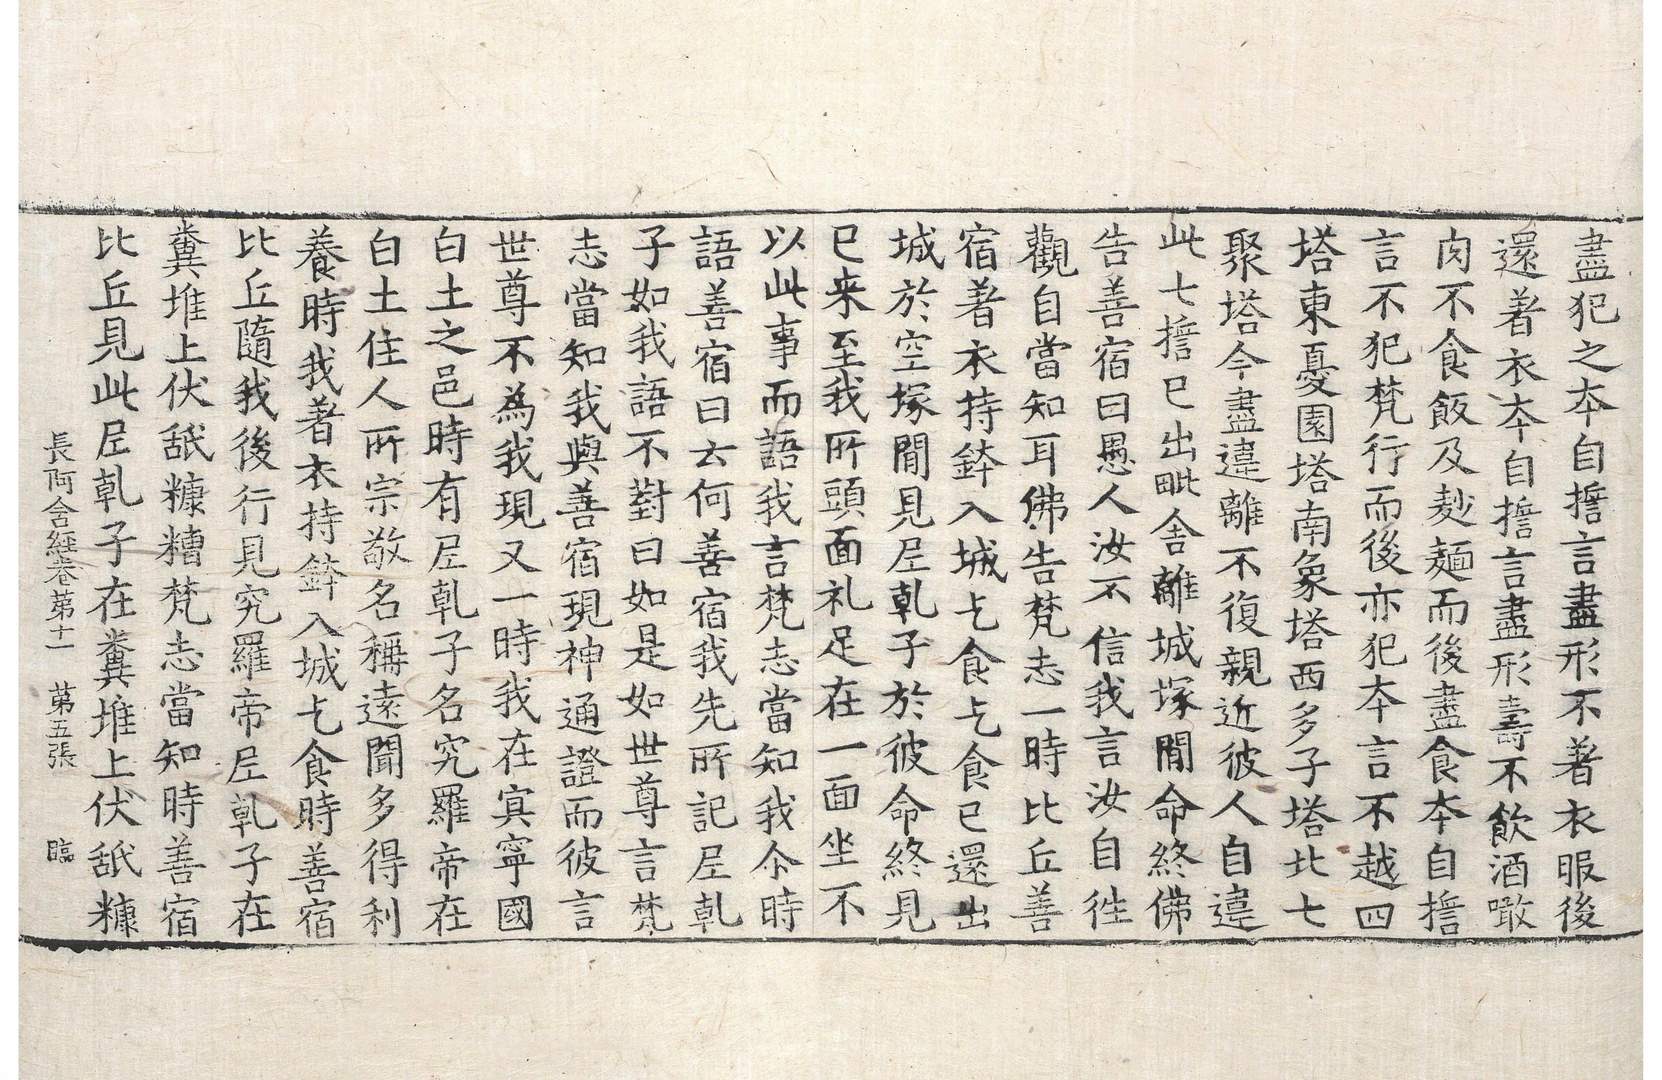 盡犯之夲自擔言盡形不著衣服後
還著衣夲自擔言盡形壽不飲酒噉
肉不食飯及麨麺而後盡食夲自擔
言不犯梵行而後亦犯夲言不越四
塔東憂園塔南象塔西多子塔北七
聚塔今盡違離不復親近彼人自違
此七擔已出毗舍離城塚閒命終佛
告善宿曰愚人汝不信我言汝自徃
觀自當知耳佛告梵志一時比丘善
宿著衣持鉢入城乞食乞食已還出
城於空塚閒見𡰱乹子於彼命終見
已来至我所頭面礼足在一面坐不
以此事而語我言梵志當知我尒時
語善宿曰云何善宿我先所記𡰱乹
子如我語不對曰如是如世尊言梵
志當知我與善宿現神通證而彼言
世尊不為我現又一時我在㝠寧國
白土之邑時有𡰱乹子名究羅帝在
白土住人所宗敬名稱遠聞多得利
養時我著衣持鉢入城乞食時善宿
比丘隨我後行見究羅帝𡰱乹子在
糞堆上伏舐糠糟梵志當知時善宿
比丘見此𡰱乹子在糞堆上伏舐糠
長阿含経卷苐十一 苐五張 臨